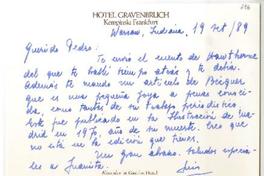 HOTEL GRAVENBRUCH
Kempinski Frankfurt
Warsaw, Indiana, 19 set/89
Querido Pedro:
Te envío el cuento de Hawthorne
del que te hablé tiempo atrás y te debía.
Además te mando un artículo de Bécquer
que es una pequeña joya a penas cono
cida, como tantas de su trabajo periodístico.
Está fue publicado en la Ilustración de Ma
drid en 1970, año de su muerte. Creo que
no está en la edición que tienes.
Un gran abrazo. Saludos especia
les a Juanita.
Luis